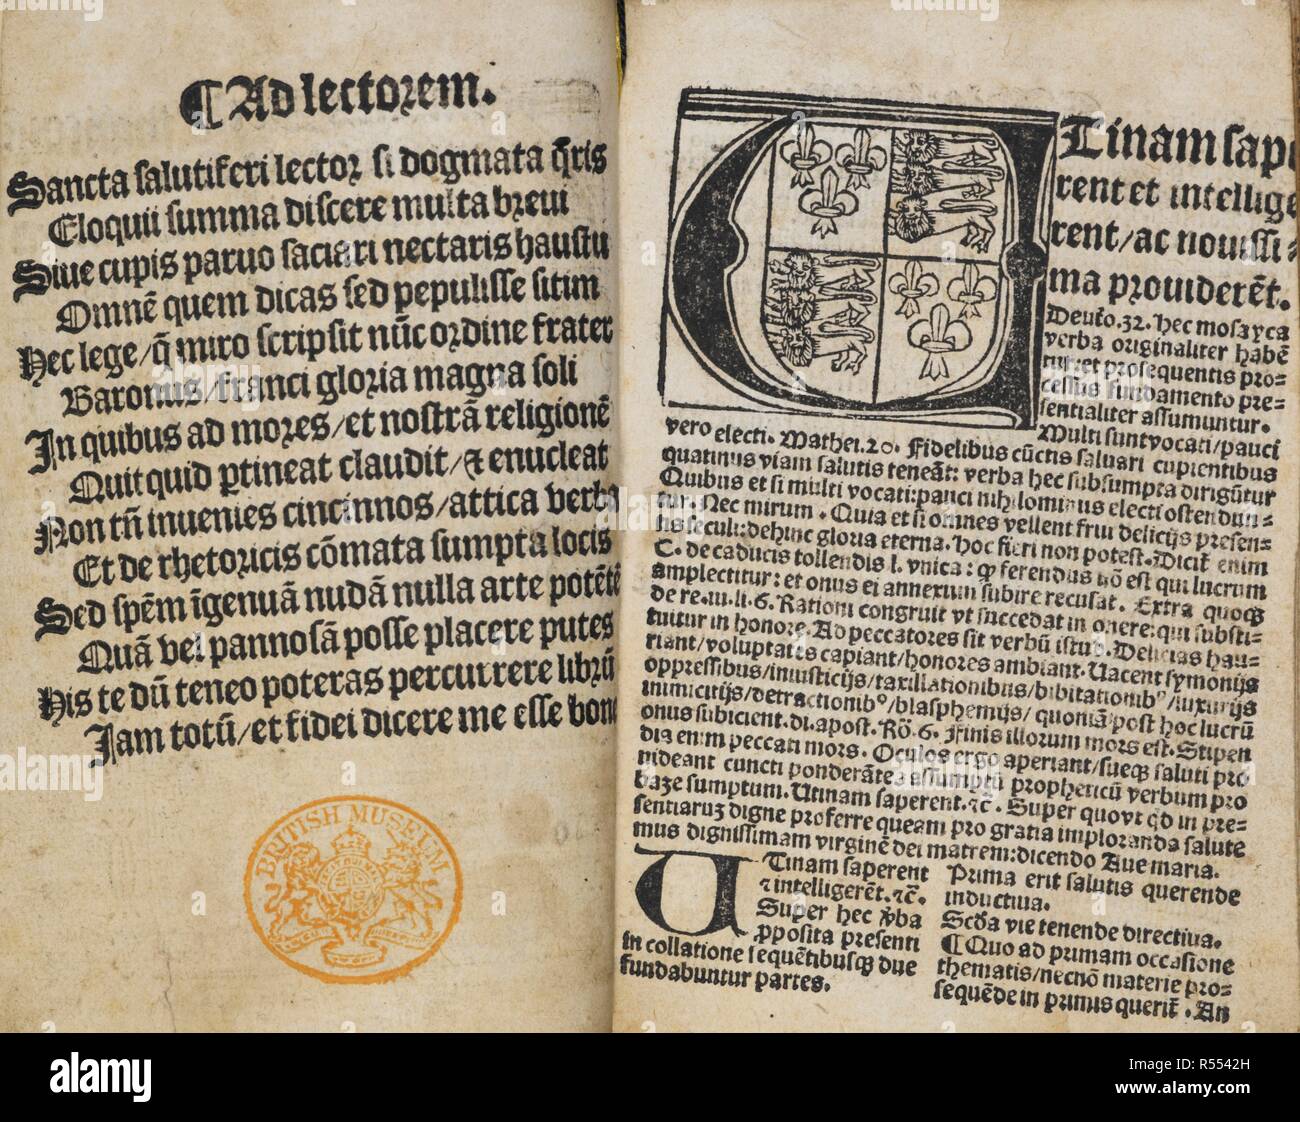 ¶ Ad lectorem.
Sancta salutiferi lector si dogmata q̄ris
Eloquii summa discere multa breui
Siue cupis paruo saciari nectaris haustu
Omnē quem dicas sed pepulisse sitim
Hec lege/ q̄ miro scripsit nūc ordine frater
Baronus/ franci gloria magna soli
In quibus ad mores/ et nostrā religionē
Quit quid ptineat claudit/ & enucleat
Non tn̄ inuenies cincinnos/ attica verba
Et de rhetoricis cōmata sumpta locis
Sed spēm īgenuā nudā nulla arte potētē
Quā vel pannosā posse placere putes
His te dū teneo poteras percurrere librū
Jam totū/ et fidei dicere me esse bone
BRITISH MUSEUM
UTinam sape
rent et intellige
rent/ ac nouissi-
ma prouiderēt.
Deuto.32. hec mosayca
verba originaliter habē
tur: et prosequentis pro-
cessus fundamento pre-
sentialiter assumuntur.
Multi sunt vocati/ pauci
vero electi. Mathei.20. Fidelibus cūctis saluari cupientibus
quatinus viam salutis teneāt: verba hec subsumpta dirigūtur
Quibus et si multi vocati: pauci nihilominus electi ostendun-
tur. Nec mirum. Quia et si omnes vellent frui delicijs presen-
tis seculi: dehinc gloria eterna. hoc fieri non potest. Dicit enim
C. de caducis tollendis l. vnica: q ferendus nō est qui lucrum
amplectitur: et onus ei annexum subire recusat. Extra quoq3
de re.iu.li.6. Rationi congruit vt succedat in onere: qui substi-
tuitur in honore. Ad peccatores sit verbū istud. Delicias hau-
riant/ voluptates capiant/ honores ambiant. Vacent symonijs
oppressibus/ iniusticijs/ taxillationibus/ bibitationibꝰ/ luxurijs
inimicitijs/ detractionibꝰ/ blasphemijs/ quoniā post hoc lucrū
onus subicient. di. apost. Rō.6. Finis illorum mors est. Stipen
dia enim peccati mors. Oculos ergo aperiant/ sueq3 saluti pro
uideant cuncti ponderātes assumptū propheticū verbum pro
baze sumptum. Utinam saperent.⁊c̄. Super quo vt qd in pre-
sentiaruz digne proferre queam pro gratia imploranda salute
mus dignissimam virginē dei matrem: dicendo Aue maria.
UTinam saperent
⁊ intelligerēt.⁊c̄.
Super hec v̄ba
pposita presenti
in collatione sequētibusq3 due
fundabuntur partes.
Prima erit salutis querende
inductiua.
Scd̄a vie tenende directiua.
¶ Quo ad primam occasione
thematis/ necnō materie pro-
sequēde in primus querit̄. An
alamy
Image ID: R5542H
www.alamy.com